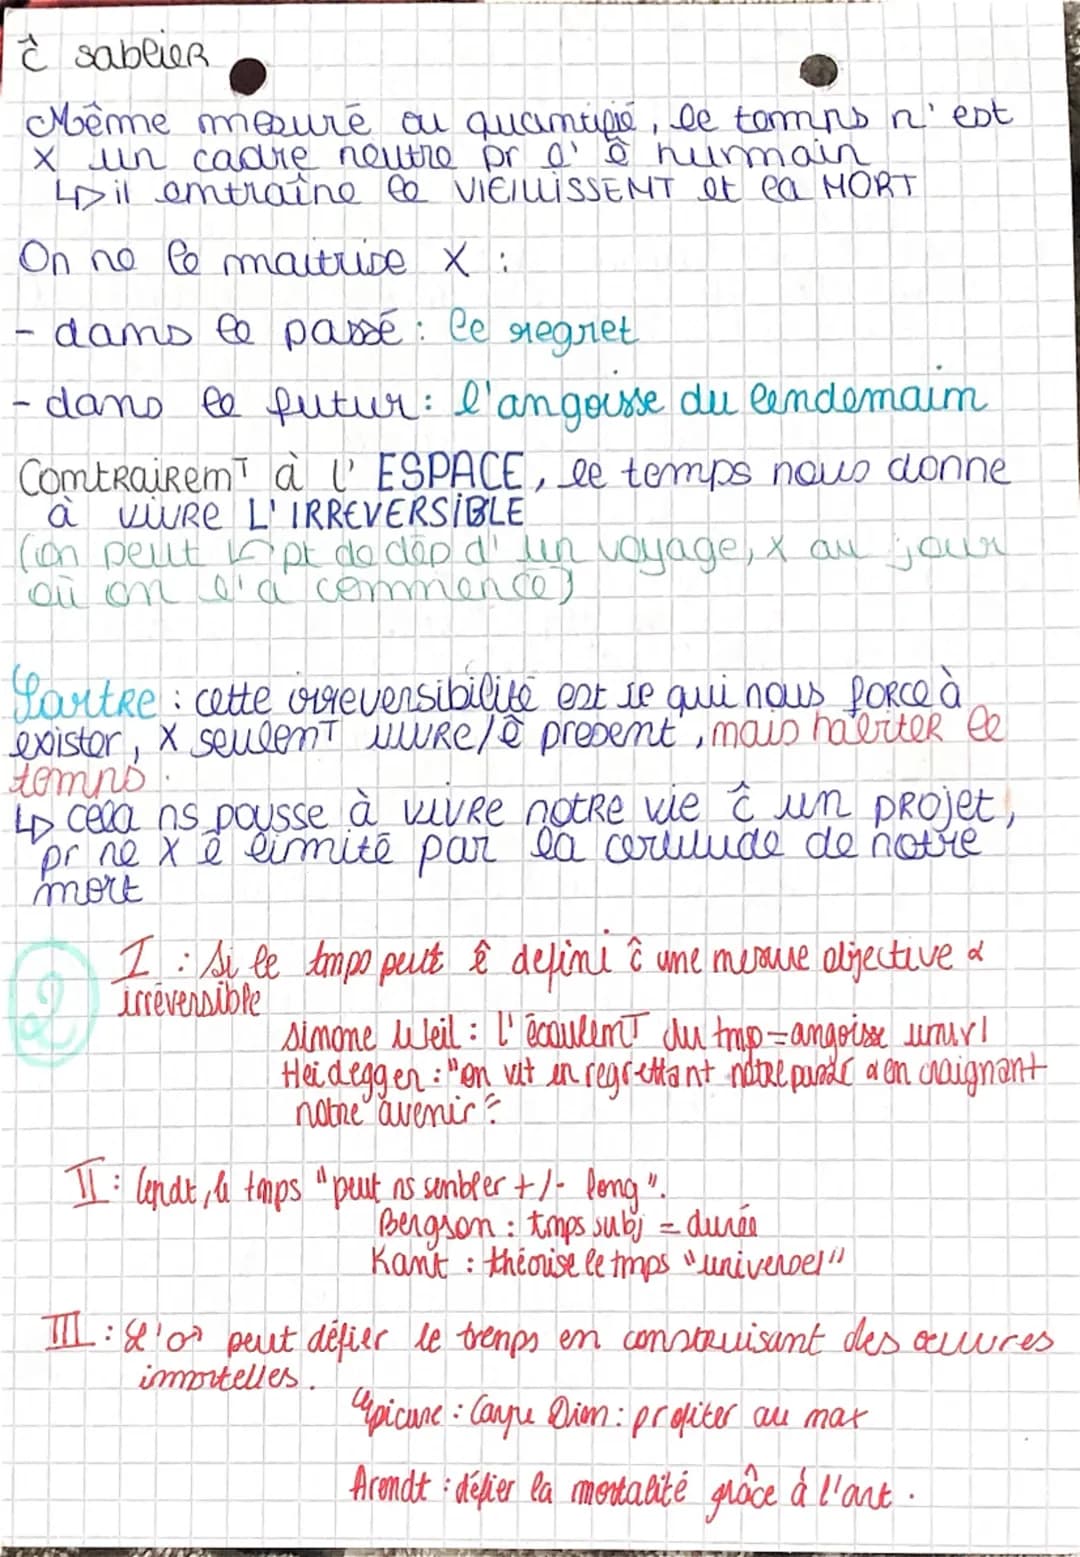 ĉ sablier
Même mesuré ou quantifié, le temps n'est
X un cadre neutre pr l'ê humain
↳ il entraîne le VIEILLISSENT et la MORT
On ne le maitrise X :
- dans le passé : le regret
- dans le futur : l'angoisse du lendemain
Contrairemᵀ à l'ESPACE, le temps nous donne
à vivre L'IRREVERSIBLE
(on peut pt de dép d'un voyage, X au jour
où on l'a commencé)
Sartre : cette irreversibilité est ce qui nous force à
exister, X seulemᵀ vivre/ê present, mais habiter le
temps.
↳ cela ns pousse à vivre notre vie ĉ un projet,
pr ne X ê limité par la certitude de notre
mort
2
I : Si le tmps peut ê defini ĉ une mesure objective &
irréversible
Simone Weil : l'écoulemᵀ du tmp = angoisse univrl
Heidegger : "on vit en regrettant notre passé & en craignant
notre avenir"
II : Cpndt, le tmps "peut ns sembler +/- long".
Bergson : tmps subj = durée
Kant : théorise le tmps "universel"
III : L'o♂ peut défier le temps en construisant des œuvres
immortelles.
Epicure : Carpe Diem : profiter au max
Arendt : défier la mortalité grâce à l'art.